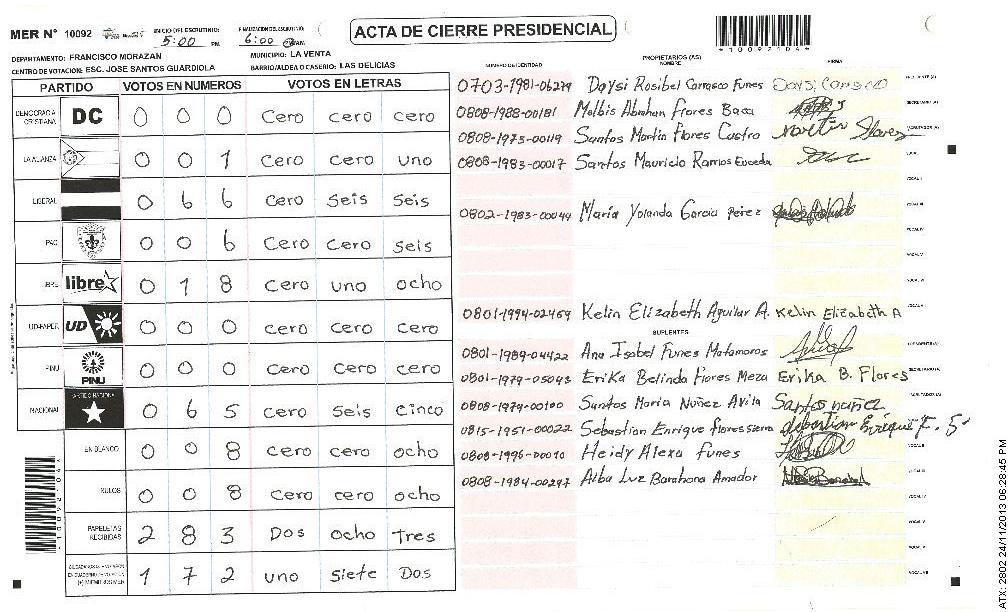 MER N° 10092
INICIO DEL ESCRUTINIO: 5:00 PM
FINALIZACION DEL ESCRUTINIO: 6:00 PM
ACTA DE CIERRE PRESIDENCIAL
*10092104*
DEPARTAMENTO: FRANCISCO MORAZAN
MUNICIPIO: LA VENTA
CENTRO DE VOTACION: ESC. JOSE SANTOS GUARDIOLA
BARRIO/ALDEA O CASERIO: LAS DELICIAS
PARTIDO VOTOS EN NUMEROS VOTOS EN LETRAS
DEMOCRACIA CRISTIANA DC 0 0 0 Cero Cero cero
LA ALIANZA 0 0 1 Cero Cero uno
LIBERAL 0 6 6 Cero Seis Seis
PAC 0 0 6 Cero Cero seis
LIBRE libre 0 1 8 Cero uno ocho
UD-FAPER UD 0 0 0 cero Cero Cero
PINU PINU 0 0 0 Cero cero cero
NACIONAL 0 6 5 cero Seis Cinco
EN BLANCO 0 0 8 cero cero ocho
NULOS 0 0 8 Cero cero ocho
PAPELETAS RECIBIDAS 2 8 3 Dos ocho Tres
1 7 2 uno Siete Dos
NUMERO DE IDENTIDAD PROPIETARIOS (AS) NOMBRE FIRMA
0703-1981-06279 Daysi Rosibel Carrasco Funes Daysi Carrasco
0808-1988-00181 Melbis Abrahan Flores Baca
0808-1973-00119 Santos Martin Flores Castro
0808-1983-00017 Santos Mauricio Ramos Euceda
0802-1983-00044 Maria Yolanda Garcia Perez
0801-1994-02469 Kelin Elizabeth Aguilar A. Kelin Elizabeth A
SUPLENTES
0801-1989-04422 Ana Isabel Funes Matamoros
0801-1979-05043 Erika Belinda Flores Meza Erika B. Flores
0808-1974-00100 Santos Maria Nuñez Avila Santos nuñez
0815-1951-00022 Sebastian Enrique flores sierra
0808-1996-00010 Heidy Alexa Funes
0808-1984-00297 Alba Luz Barahona Amador
*10092104*
ATX: 2802 24/11/2013 06:28:45 PM